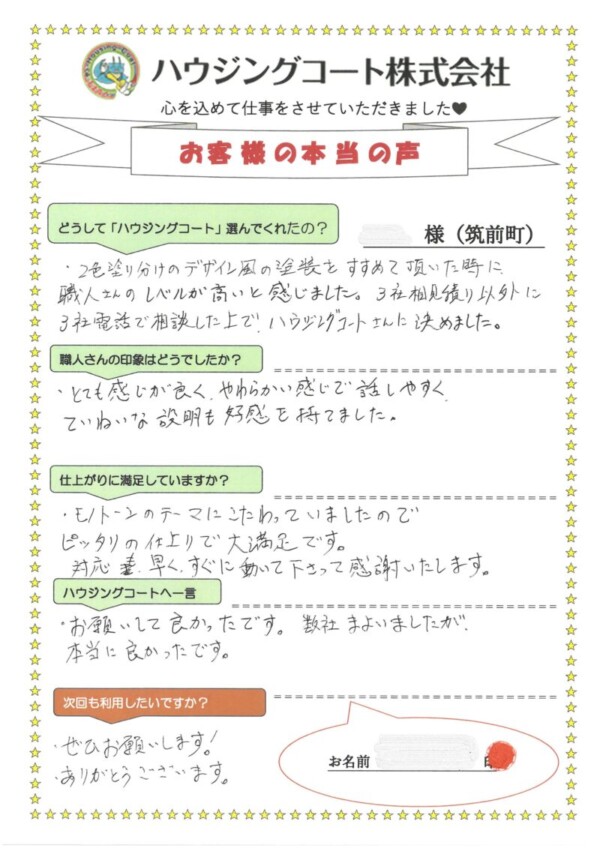 ハウジングコート株式会社
心を込めて仕事をさせていただきました♥
お客様の本当の声
どうして「ハウジングコート」選んでくれたの？
様（筑前町）
・2色塗り分けのデザイン風の塗装をすすめて頂いた時に
職人さんのレベルが高いと感じました。3社相見積り以外に
3社電話で相談した上で、ハウジングコートさんに決めました。
職人さんの印象はどうでしたか？
・とても感じが良く、やわらかい感じで話しやすく、
ていねいな説明も好感を持てました。
仕上がりに満足していますか？
・モノトーンのテーマにこだわっていましたので
ピッタリの仕上りで大満足です。
対応 早く、すぐに動いて下さって感謝いたします。
ハウジングコートへ一言
・お願いして良かったです。数社まよいましたが、
本当に良かったです。
次回も利用したいですか？
・ぜひお願いします!
・ありがとうございます。
お名前
印